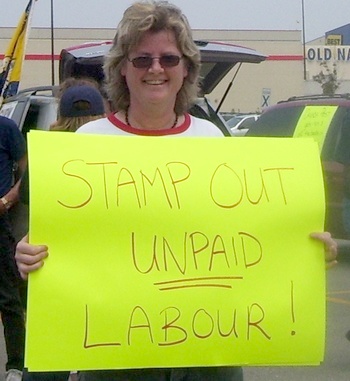 BEST
OLD NA
STAMP OUT
UNPAID
LABOUR!